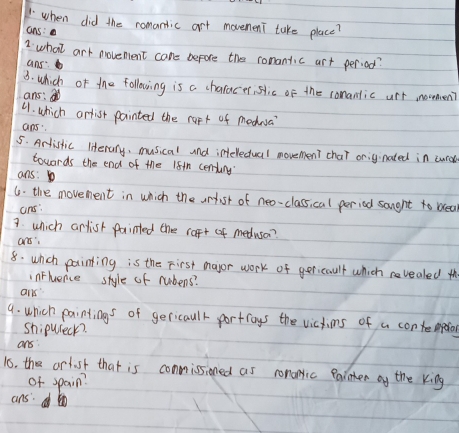 1. when did the romantic art movement take place?
ans: a
2. what art movement came before the romantic art period?
ans: b
3. which of the following is a characteristic of the romantic art movement
ans:
4. which artist painted the raft of Medusa?
ans:
5. Artistic literary, musical and intellectual movement that originated in
towards the end of the 18th century.
ans: b
6. the movement in which the artist of neo-classical period sought to break
ans:
7. which artist painted the raft of medusa?
ans:
8. which painting is the first major work of gericault which revealed th
influence style of rubens?
ans
9. which paintings of gericault portrays the victims of a contempor
shipwreck?
ans:
10. the artist that is commissioned as romantic Painter by the King
of spain?
ans: d